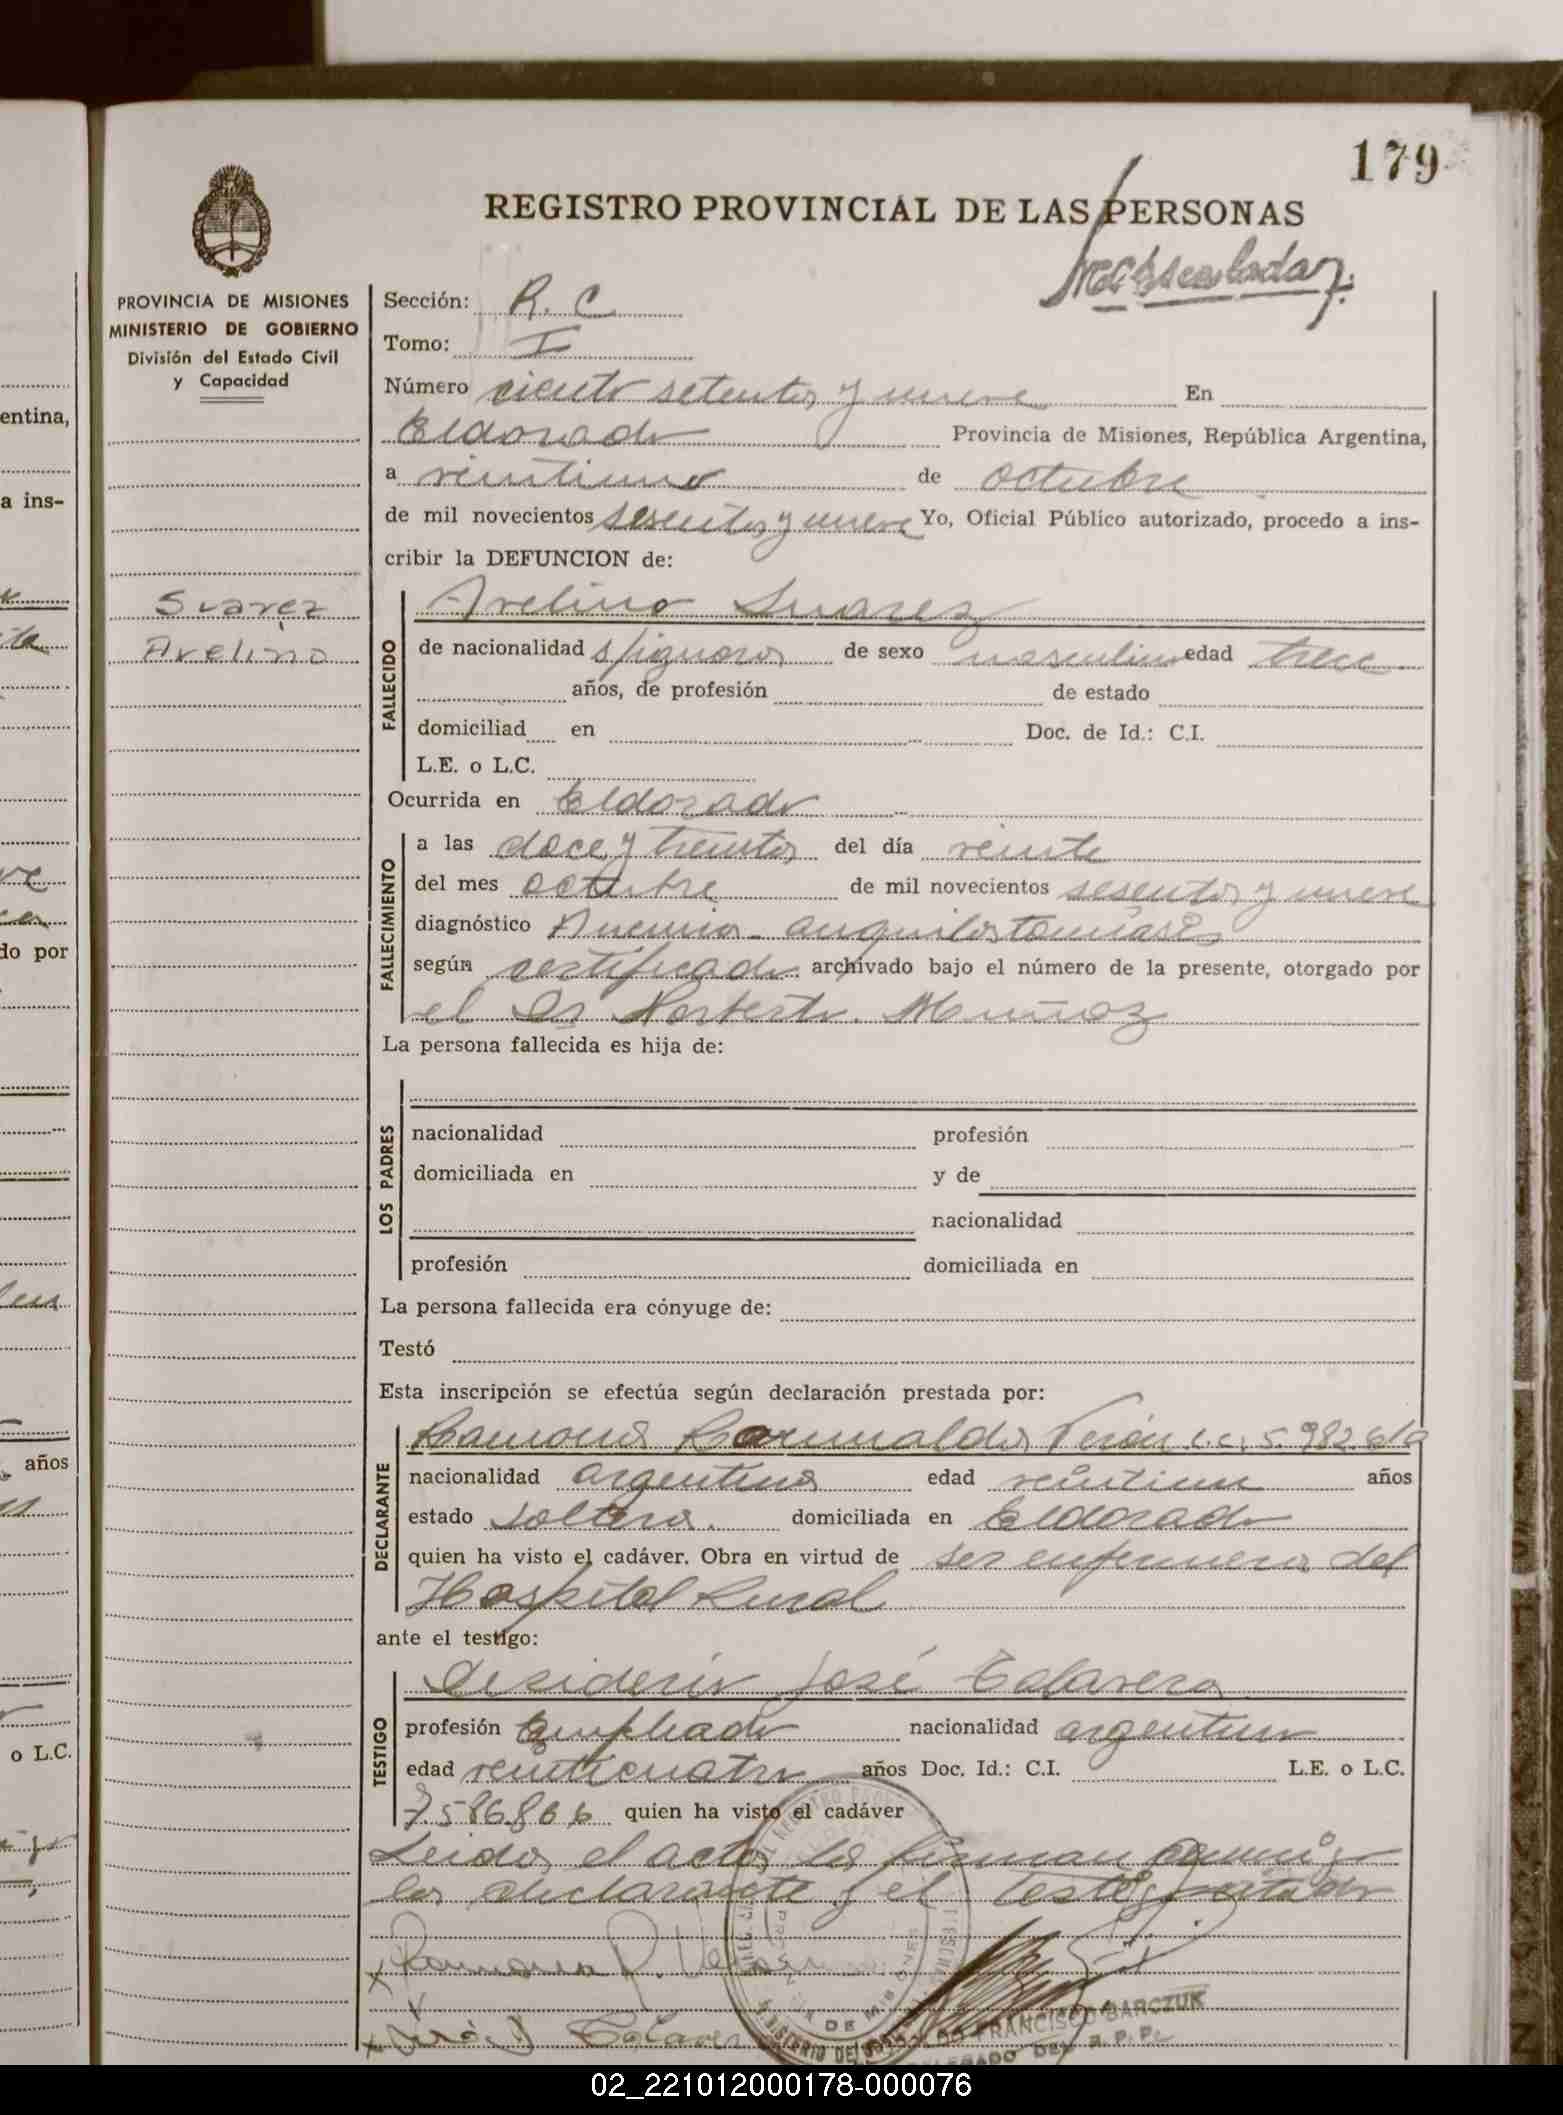 179
REGISTRO PROVINCIAL DE LAS PERSONAS
PROVINCIA DE MISIONES
MINISTERIO DE GOBIERNO
División del Estado Civil
y Capacidad
Sección: R. C
Tomo: I
Número ciento setenta y nueve En
Eldorado Provincia de Misiones, República Argentina,
a veintiuno de octubre
de mil novecientos sesenta y nueve Yo, Oficial Público autorizado, procedo a ins-
cribir la DEFUNCION de:
Suarez
Avelino
FALLECIDO
Avelino Suarez
de nacionalidad de sexo masculino edad trece
años, de profesión de estado
domiciliad en Doc. de Id.: C.I.
L.E. o L.C.
Ocurrida en Eldorado
FALLECIMIENTO
a las doce y treinta del día veinte
del mes octubre de mil novecientos sesenta y nueve
diagnóstico Anemia - anquilostomiasis
según certificado archivado bajo el número de la presente, otorgado por
el Dr Norberto Muñoz
La persona fallecida es hija de:
LOS PADRES
nacionalidad profesión
domiciliada en y de
nacionalidad
profesión domiciliada en
La persona fallecida era cónyuge de:
Testó
Esta inscripción se efectúa según declaración prestada por:
DECLARANTE
Ramona Romualda Verón L.C. 5.982.610
nacionalidad argentina edad veintiun años
estado soltera domiciliada en Eldorado
quien ha visto el cadáver. Obra en virtud de ser enfermera del
Hospital Rural
ante el testigo:
TESTIGO
Desiderio José Talavera
profesión Empleado nacionalidad argentino
edad veinticuatro años Doc. Id.: C.I. L.E. o L.C.
7.586.866 quien ha visto el cadáver
Leida el acta la firman conmigo
la declarante y el testigo citado
Ramona R. Verón
Talavera
FRANCISCO BARCZUK
DELEGADO DEL R. P. P.
entina,
a ins-
do por
años
o L.C.
02_221012000178-000076